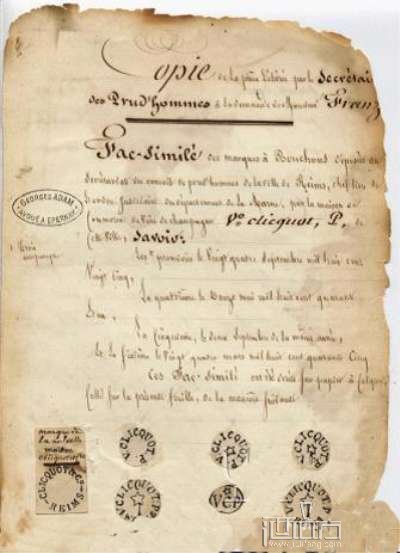 Copie de la pièce délivrée par le Secrétai
des Prud'hommes à la demande de Monsieur Franz
Fac-Similé des marques à Bouchons déposées au
Secrétariat du conseil de prud'hommes de la ville de Reims, chef lieu de
du département de la Marne, par la maison de
Commerce de Vins de champagne Ve clicquot, P, de
cette ville, Savoir:
GEORGES ADAM
AVOUÉ A EPERNAY
Les trois premières le Vingt quatre Septembre mil huit cent
Vingt cinq,
La quatrième le Douze mai mil huit cent quarante
Un,
La Cinquième, le deux Septembre de la même année,
Et la Sixième le Vingt quatre mars mil huit cent quarante Cinq
Ces Fac-Simili ont été tirés sur papier à Calquer
Collé sur la présente feuille, de la manière suivante
marque de
la nouvelle
maison
CLICQUOT
REIMS
V. CLICQUOT. P.
V. CLICQUOT. P.
V. CLICQUOT. P.
V. CLICQUOT. P.
VCP
V. CLICQUOT. P.